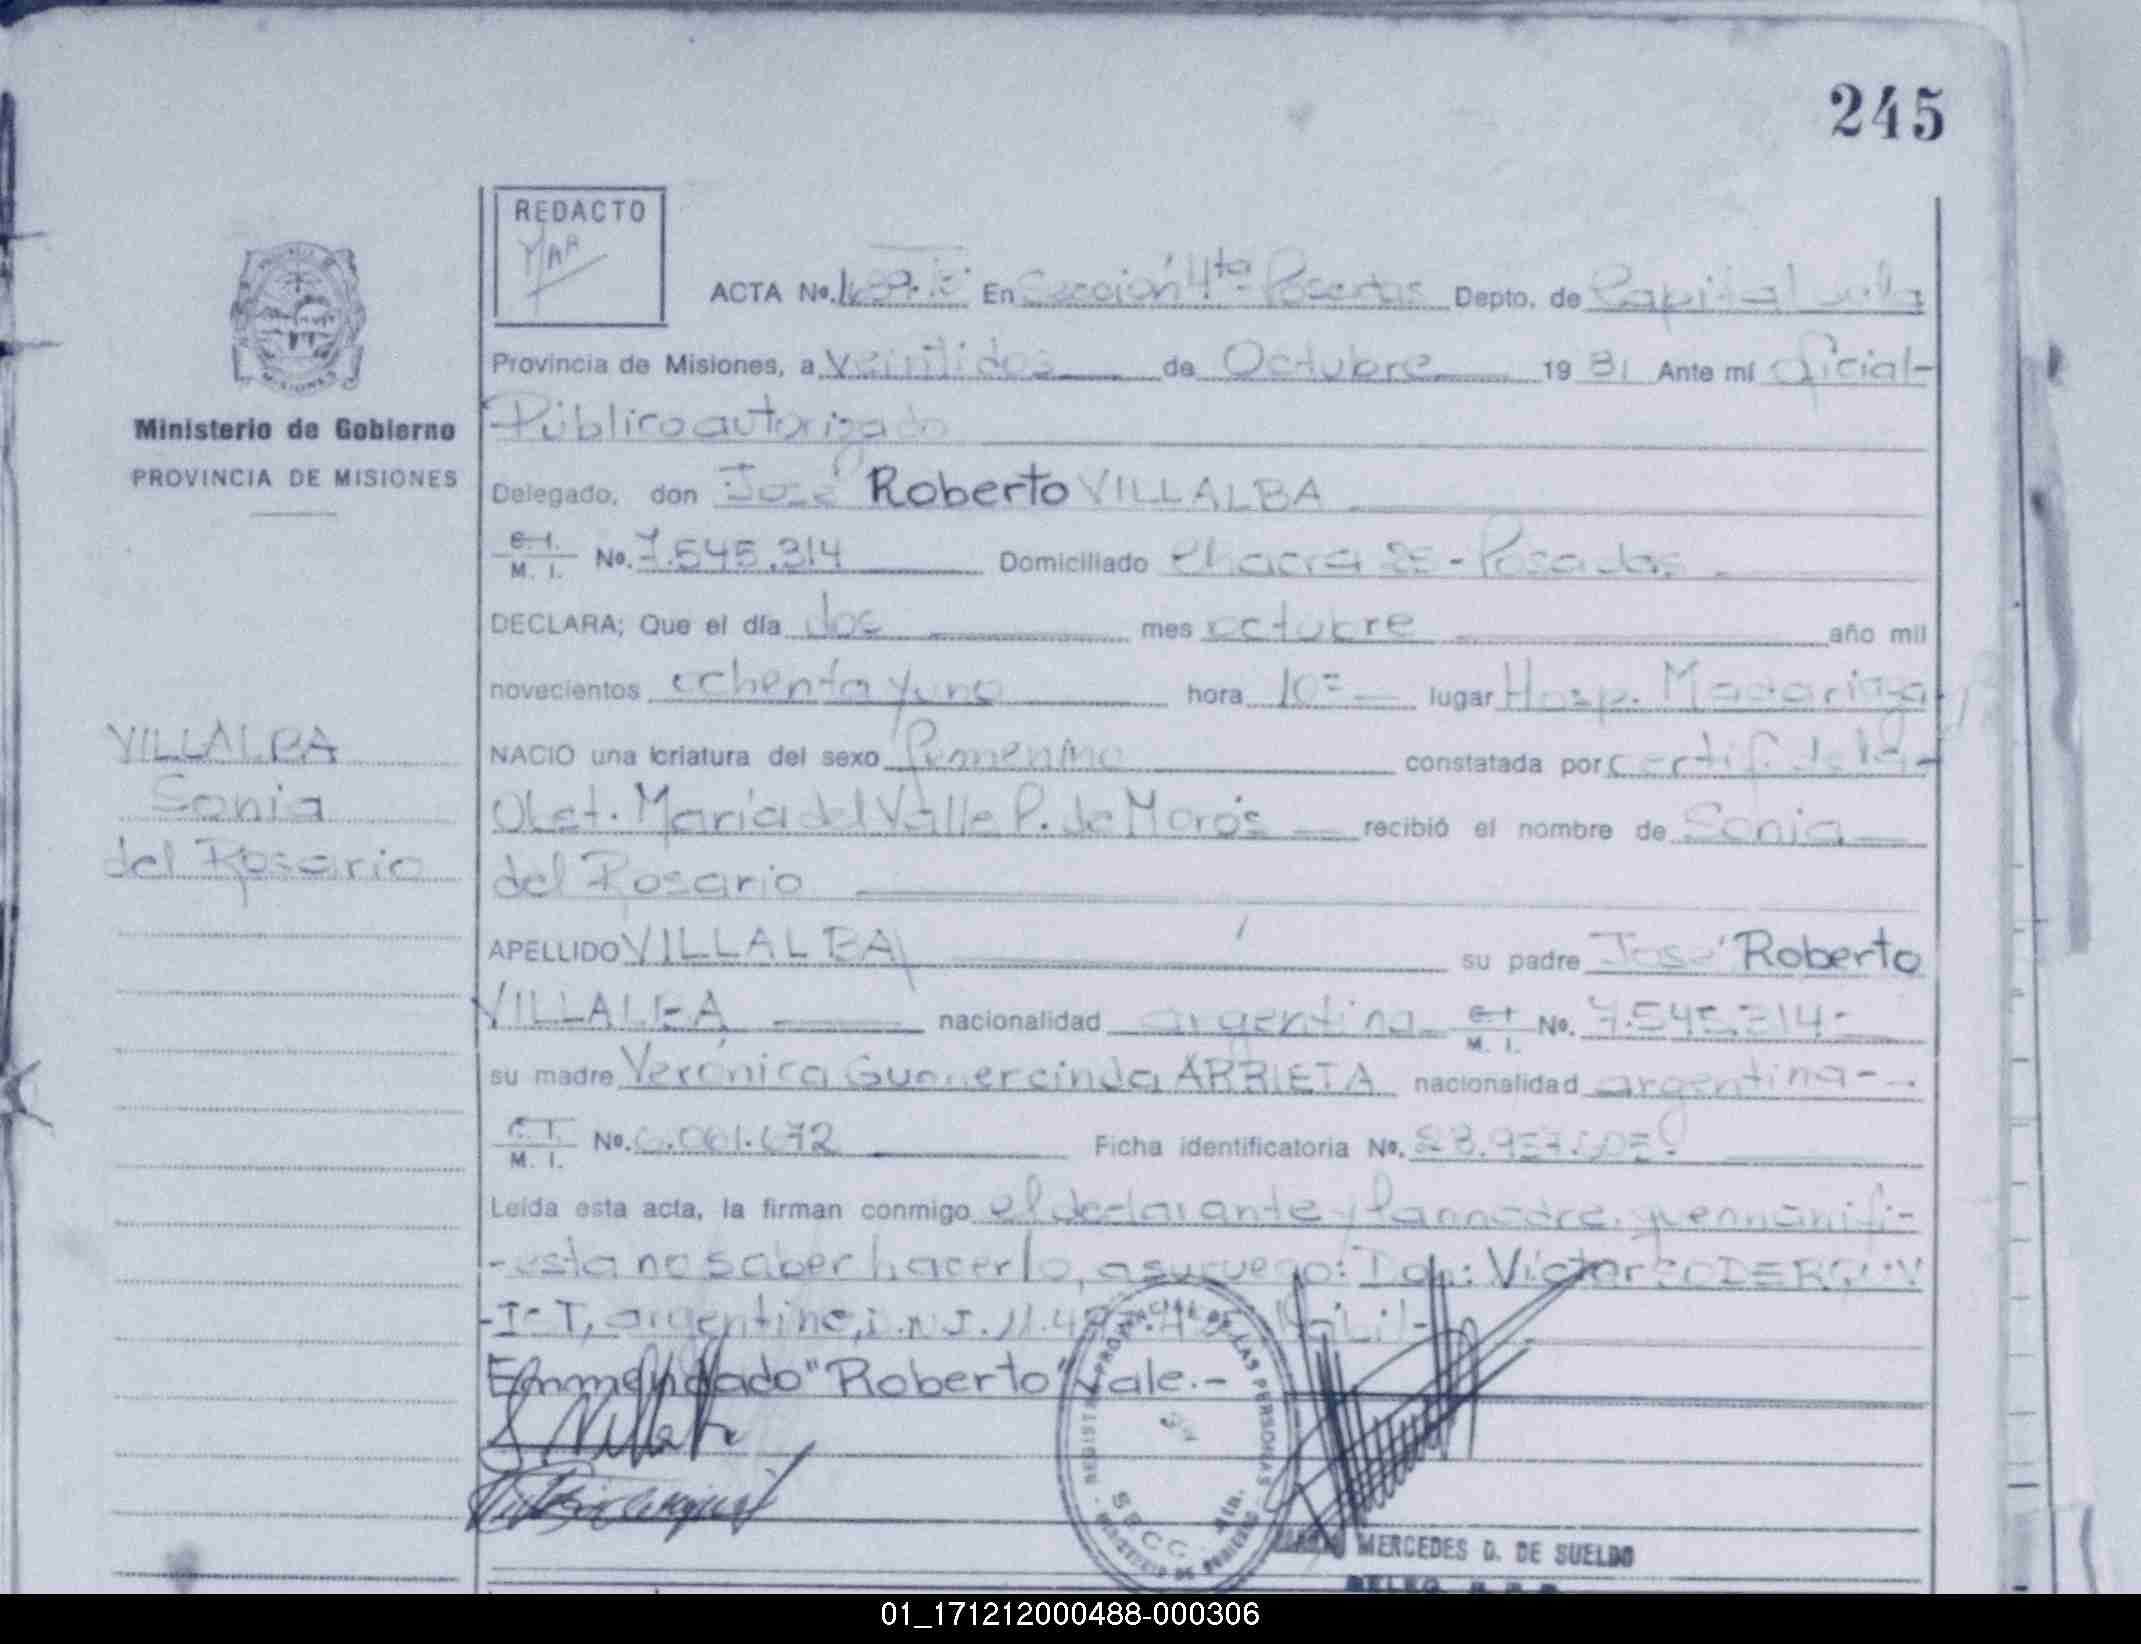 245
REDACTO
ACTA No. En Sección 4ta Posadas Depto. de Capital
Provincia de Misiones, a Veintidos de Octubre 1981 Ante mí oficial-
Público autorizado
Ministerio de Gobierno
PROVINCIA DE MISIONES
Delegado, don José Roberto VILLALBA
C. I. M. I. No. 7.545.314 Domiciliado Chacra - Posadas.
DECLARA; Que el día dos mes octubre año mil
novecientos ochenta y uno hora 10 lugar Hosp. Madariaga
VILLALBA
Sonia
del Rosario
NACIO una criatura del sexo femenino constatada por certif. de la
Obst. María del Valle P. de Morós recibió el nombre de Sonia
del Rosario
APELLIDO VILLALBA su padre José Roberto
VILLALBA nacionalidad argentina C. I. M. I. No. 7.545.314-
su madre Verónica Gumercinda ARRIETA nacionalidad argentina-.
C. I. M. I. No. 6.061.672 Ficha identificatoria No.
Leída esta acta, la firman conmigo el declarante y la madre, quien manifi-
-esta no saber hacerlo, a su ruego: Don: Victor
argentino,
Emmendado "Roberto" Vale.-
REGISTRO PROVINCIAL DE LAS PERSONAS
MINISTERIO DE GOBIERNO
MERCEDES D. DE SUELDO
01_171212000488-000306